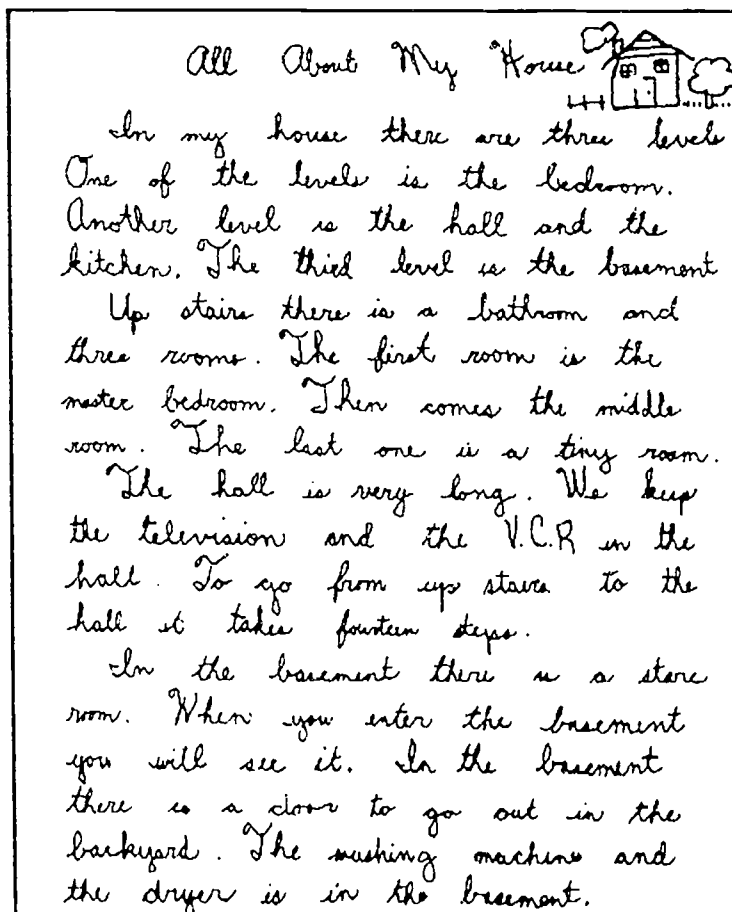 All About My House
In my house there are three levels
One of the levels is the bedroom.
Another level is the hall and the
kitchen. The third level is the basement
Up stairs there is a bathroom and
three rooms. The first room is the
master bedroom. Then comes the middle
room. The last one is a tiny room.
The hall is very long. We keep
the television and the V.C.R in the
hall. To go from up stairs to the
hall it takes fourteen steps.
In the basement there is a store
room. When you enter the basement
you will see it. In the basement
there is a door to go out in the
backyard. The washing machine and
the dryer is in the basement.